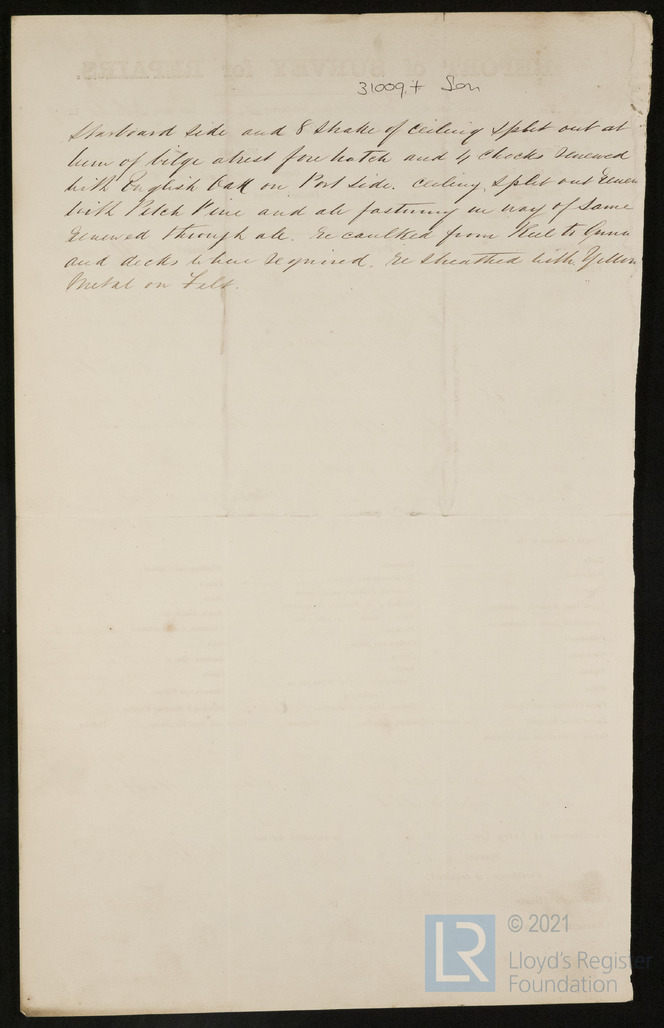 REPORT of SURVEY for REPAIRS.
31009,+ Son
Starboard side and 8 Strake of ceiling split out at
turn of bilge abrest fore hatch and 4 Chocks renewed
with English Oak on Port side. ceiling split out renew
with Pitch Pine and all fastning in way of Same
renewed through all. re caulked from Keel to Gunn
and decks where required. re sheathed with Yellow
Metal on Felt.
LR
© 2021
Lloyd's Register
Foundation